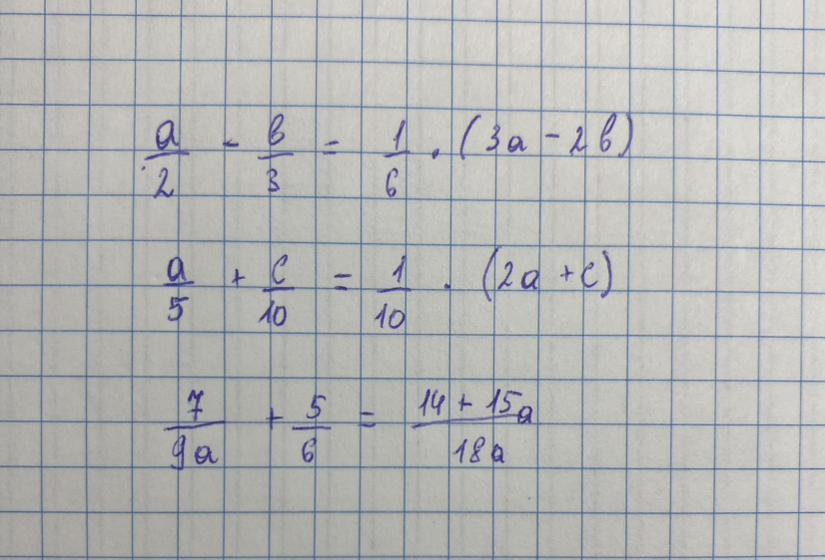 a/2 - b/3 = 1/6 · (3a - 2b)
a/5 + c/10 = 1/10 · (2a + c)
7/9a + 5/6 = 14 + 15a/18a